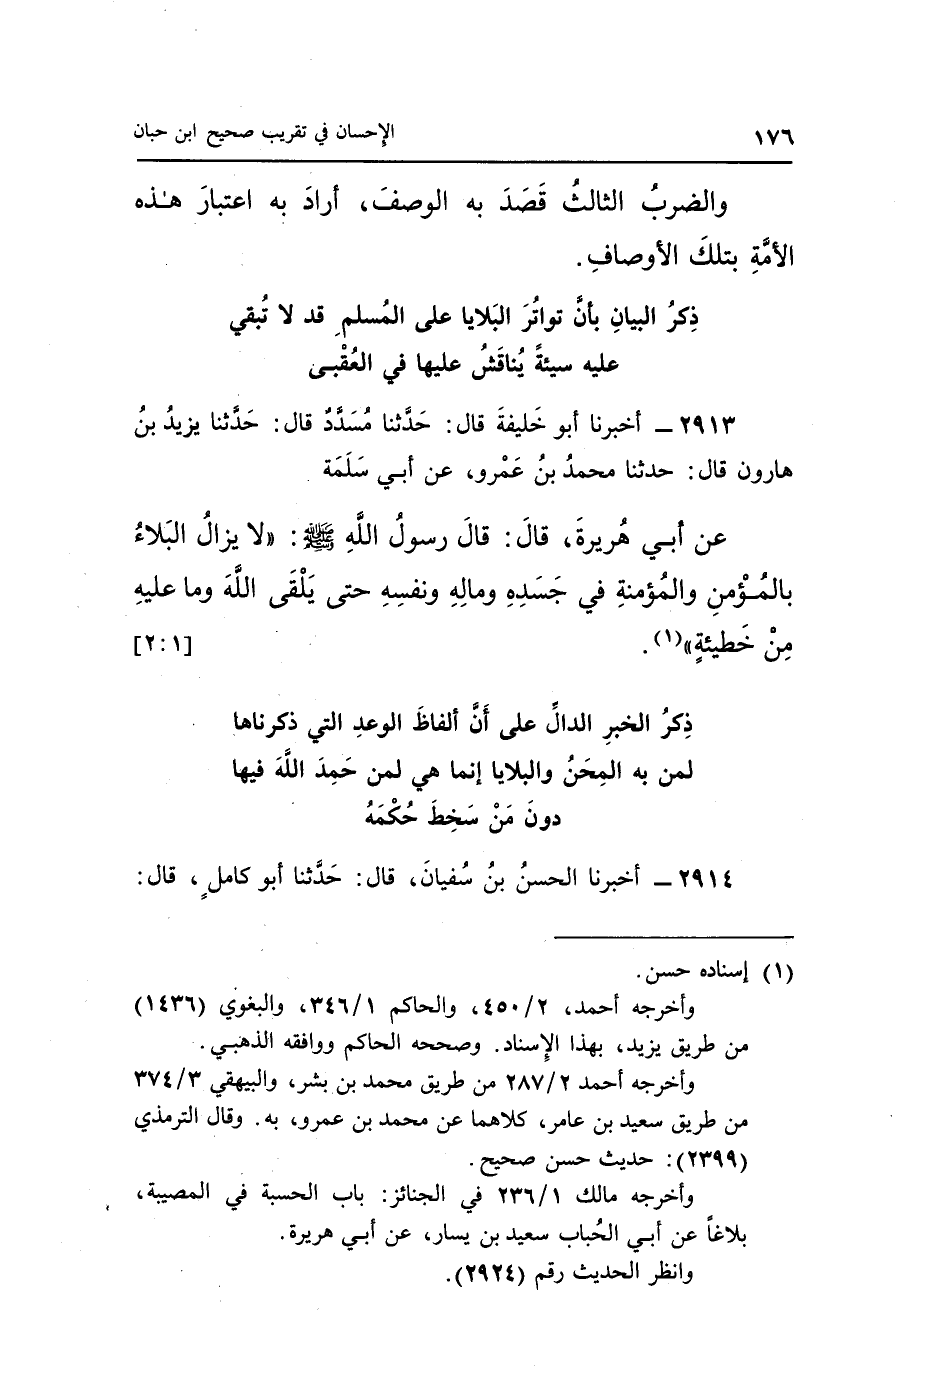 ١٧٦ الإحسان في تقريب صحيح ابن حبان
والضربُ الثالثُ قَصَدَ به الوصفَ، أرادَ به اعتبارَ هـٰذه
الأمَّةِ بتلكَ الأوصافِ.
ذِكرُ البيانِ بأنَّ تواتُرَ البَلايا على المُسلمِ قد لا تُبقي
عليه سيئةً يُناقَشُ عليها في العُقْبـى
٢٩١٣ ــ أخبرنا أبو خَليفةَ قال: حَدَّثنا مُسَدَّدٌ قال: حَدَّثنا يزيدُ بنُ
هارون قال: حدثنا محمدُ بنُ عَمْرو، عن أبـي سَلَمَة
عن أبـي هُريرةَ، قالَ: قالَ رسولُ اللَّهِ ﷺ: «لا يزالُ البَلاءُ
بالمُـؤْمنِ والمُؤمنةِ في جَسَدِهِ ومالِهِ ونفسِهِ حتى يَلْقَى اللَّهَ وما عليهِ
مِنْ خَطيئةٍ»(١). [٢:١]
ذِكرُ الخبرِ الدالِّ على أَنَّ ألفاظَ الوعدِ التي ذكرناها
لمن به المِحَنُ والبلايا إنما هي لمن حَمِدَ اللَّهَ فيها
دونَ مَنْ سَخِطَ حُكْمَهُ
٢٩١٤ ــ أخبرنا الحسنُ بنُ سُفيانَ، قال: حَدَّثنا أبو كاملٍ، قال:
(١) إسناده حسن.
وأخرجه أحمد، ٤٥٠/٢، والحاكم ٣٤٦/١، والبغوي (١٤٣٦)
من طريق يزيد، بهذا الإسناد. وصححه الحاكم ووافقه الذهبـي.
وأخرجه أحمد ٢٨٧/٢ من طريق محمد بن بشر، والبيهقي ٣٧٤/٣
من طريق سعيد بن عامر، كلاهما عن محمد بن عمرو، به. وقال الترمذي
(٢٣٩٩): حديث حسن صحيح.
وأخرجه مالك ٢٣٦/١ في الجنائز: باب الحسبة في المصيبة،
بلاغاً عن أبـي الحُباب سعيد بن يسار، عن أبـي هريرة.
وانظر الحديث رقم (٢٩٢٤).